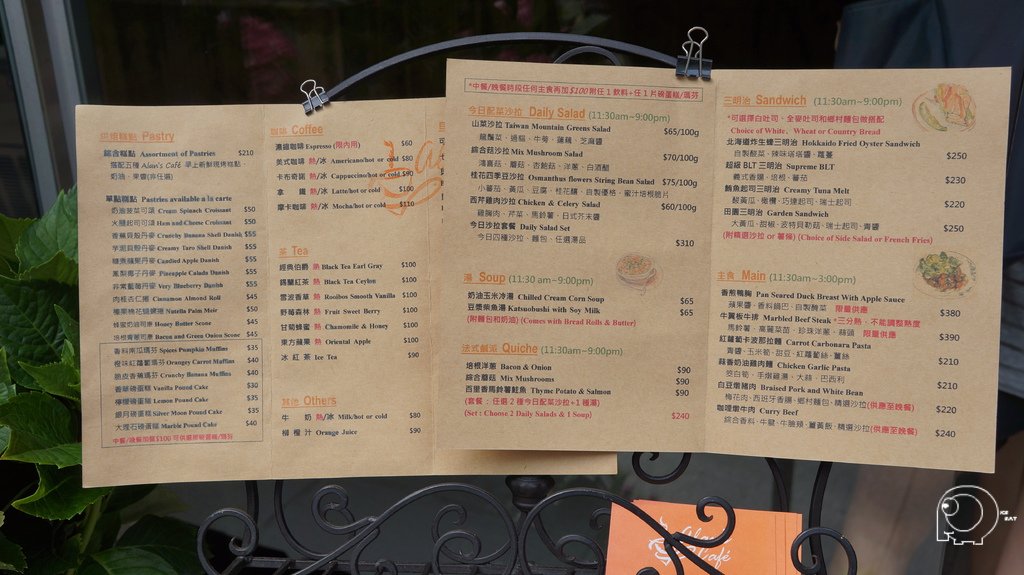 烘焙糕點 Pastry
綜合糕點 Assortment of Pastries $210
搭配五種 Alan's Café 早上新鮮現烤糕點、
奶油、果醬(非任選)
單點糕點 Pastries available a la carte
奶油菠菜可頌 Cream Spinach Croissant $50
火腿起司可頌 Ham and Cheese Croissant $50
香蕉貝殼丹麥 Crunchy Banana Shell Danish $55
芋泥貝殼丹麥 Creamy Taro Shell Danish $55
糖煮蘋果丹麥 Candied Apple Danish $55
鳳梨椰子丹麥 Pineapple Calada Danish $55
非常藍莓丹麥 Very Blueberry Danish $55
肉桂杏仁捲 Cinnamon Almond Roll $45
Nutella Palm Meir $50
蜂蜜奶油司康 Honey Butter Scone $45
培根青蔥司康 Bacon and Green Onion Scone $45
香料南瓜瑪芬 Spices Pumpkin Muffins $35
橙味紅蘿蔔瑪芬 Oranges Carrot Muffins $40
脆皮香蕉瑪芬 Crunchy Banana Muffins $40
香草磅蛋糕 Vanilla Pound Cake $30
檸檬磅蛋糕 Lemon Pound Cake $35
銀月磅蛋糕 Silver Moon Pound Cake $35
大理石磅蛋糕 Marble Pound Cake $40
中餐/晚餐加價$100 可供選擇磅蛋糕/瑪芬
咖啡 Coffee
濃縮咖啡 Espresso (限內用) $60
美式咖啡 熱/冰 Americano/hot or cold $80
卡布奇諾 熱/冰 Cappuccino/hot or cold $90
拿 鐵 熱/冰 Latte/hot or cold $100
摩卡咖啡 熱/冰 Mocha/hot or cold $110
茶 Tea
經典伯爵 熱 Black Tea Earl Gray $100
錫蘭紅茶 熱 Black Tea Ceylon $100
雪波香草 熱 Rooibos Smooth Vanilla $100
野莓森林 熱 Fruit Sweet Berry $100
甘菊蜂蜜 熱 Chamomile & Honey $100
東方蘋果 熱 Oriental Apple $100
冰 紅 茶 Ice Tea $90
其他 Others
牛 奶 熱/冰 Milk/hot or cold $80
柳 橙 汁 Orange Juice $90
*中餐/晚餐時段任何主食再加$100 附任 1 飲料+任 1 片磅蛋糕/瑪芬
今日配菜沙拉 Daily Salad (11:30am~9:00pm)
山菜沙拉 Taiwan Mountain Greens Salad $65/100g
龍鬚菜、過貓、牛蒡、蓮藕、芝麻醬
綜合菇沙拉 Mix Mushroom Salad $70/100g
鴻喜菇、蘑菇、杏鮑菇、洋蔥、白酒醋
桂花四季豆沙拉 Osmanthus flowers String Bean Salad $75/100g
小番茄、黃瓜、豆腐、桂花釀、自製優格、蜜汁培根脆片
西芹雞肉沙拉 Chicken & Celery Salad $60/100g
雞腿肉、芹菜、馬鈴薯、日式芥末醬
今日沙拉套餐 Daily Salad Set $310
今日四種沙拉、麵包、任選湯品
湯 Soup (11:30 am~9:00pm)
奶油玉米冷湯 Chilled Cream Corn Soup $65
豆漿柴魚湯 Katsuobushi with Soy Milk $65
(附麵包和奶油) (Comes with Bread Rolls & Butter)
法式鹹派 Quiche (11:30am~9:00pm)
培根洋蔥 Bacon & Onion $90
綜合蘑菇 Mix Mushrooms $90
百里香馬鈴薯鮭魚 Thyme Potato & Salmon $90
(套餐：任選 2 種今日配菜沙拉+1 種湯) $240
(Set : Choose 2 Daily Salads & 1 Soup)
三明治 Sandwich (11:30am~9:00pm)
*可選擇白吐司、全麥吐司和鄉村麵包做搭配
Choice of White、Wheat or Country Bread
北海道炸生蠔三明治 Hokkaido Fried Oyster Sandwich
自製酸菜、辣味塔塔醬、蘿蔓 $250
超級 BLT 三明治 Supreme BLT
義式香腸、培根、番茄 $230
鮪魚起司三明治 Creamy Tuna Melt
酸黃瓜、橄欖、巧達起司、瑞士起司 $220
田園三明治 Garden Sandwich
大黃瓜、甜椒、波特貝勒菇、瑞士起司、青醬 $250
(附精選沙拉 or 薯條) (Choice of Side Salad or French Fries)
主食 Main (11:30am~3:00pm)
香煎鴨胸 Pan Seared Duck Breast With Apple Sauce
蘋果醬、香料鍋巴、自製醃菜 限量供應 $380
牛翼板牛排 Marbled Beef Steak *三分熟，不能調整熟度
馬鈴薯、高麗菜苗、珍珠洋蔥、蒜頭 限量供應 $390
紅蘿蔔卡波那拉麵 Carrot Carbonara Pasta
青醬、玉米筍、甜豆、紅蘿蔔絲、薑絲 $210
蒜香奶油雞肉麵 Chicken Garlic Pasta
筊白筍、手撕雞湯、大蒜、巴西利 $210
白豆燉豬肉 Braised Pork and White Bean
梅花肉、西班牙香腸、鄉村麵包、精選沙拉(供應至晚餐) $220
咖哩燉牛肉 Curry Beef
綜合香料、牛腱、牛臉頰、薑黃飯、精選沙拉(供應至晚餐) $240
Alan's Café
ICE EAT